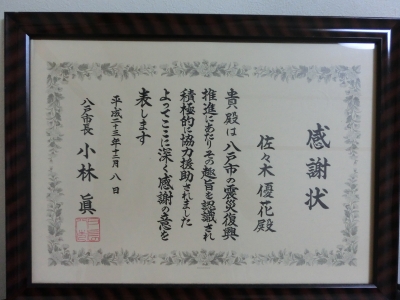 感謝状
佐々木 優花殿
貴殿は八戸市の震災復興
推進にあたりその趣旨を認識され
積極的に協力援助されました
よってここに深く感謝の意を
表します
平成二十三年十二月八日
八戸市長 小林 眞